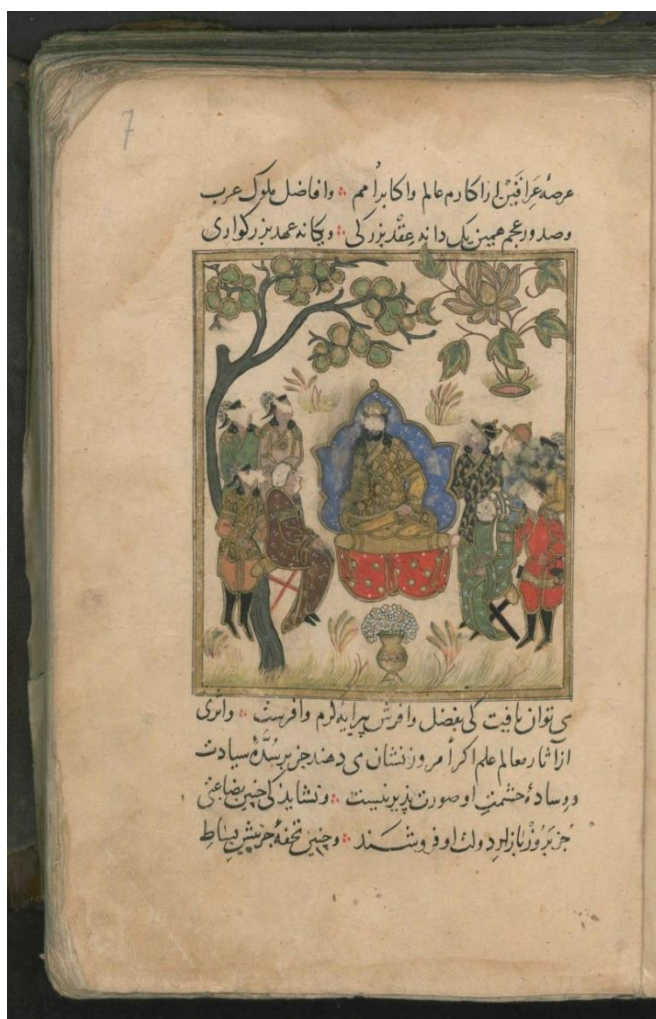 7
عرصهٔ عراقین از اکارم عالم و اکابر اُمم ∴ و افاضل ملوک عرب
و صدور عجم همین یک دانه عِقْد بزرکی ∴ و یکانه عهد بزرکواری
می توان یافت کی بفضل وافرش پیرایهٔ کرم وافرست ∴ و اثری
از آثار معالم علم اکر امروز نشان می دهند جز بر سُدَّهٔ سیادت
و وسادهٔ حشمت او صورت پذیر نیست ∴ و نشاید کی چنین بضاعتی
جز بَرُوزْ بازار دولت او فروشند ∴ و چنین تحفهٔ جز پیش بساط